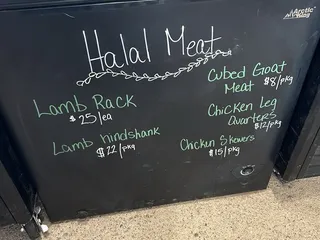 Arctic
Halal Meat
Lamb Rack
$25/ea
Lamb hindshank
$22/pkg
Cubed Goat
Meat $8/pkg
Chicken Leg
Quarters
$12/pkg
Chicken Skewers
$15/pkg